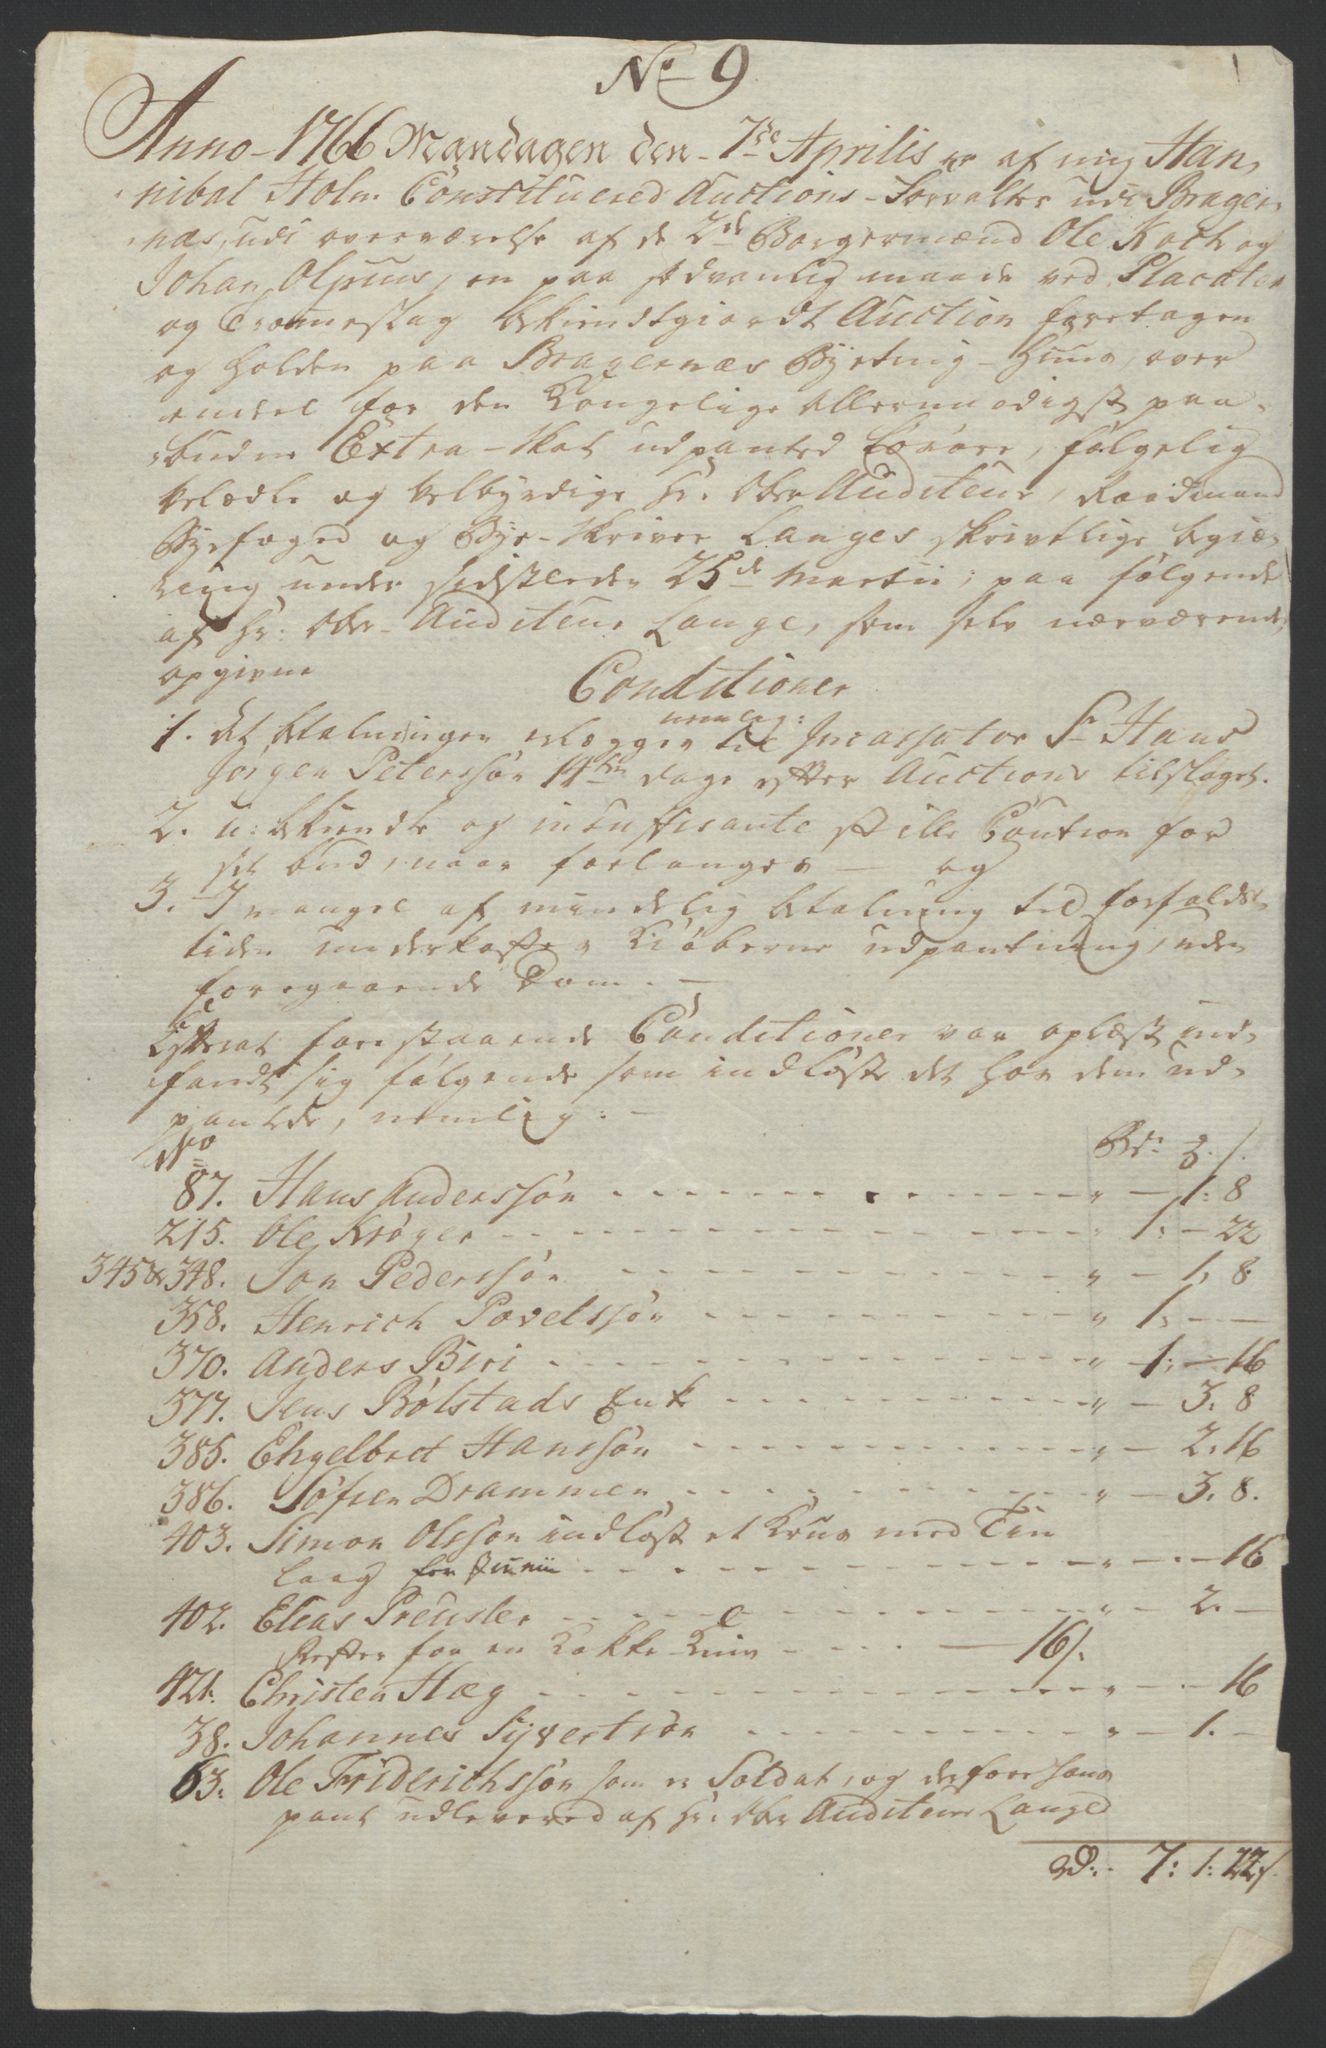 No 9
Anno 1766 Mandagen den 7de Aprilis er af mig Han-
nibal Holm Constituered Auctions-Forvalter udi Brager-
næs, udi overværelse af de 2de Borgermænd Ole Koch og
Johan Olpius, en paa sædvanlig maade ved Placater
og Trommeslag bekiendtgiordt Auction foretagen
og holden paa Bragernæs Byeting-Huus, over
endeel for den Kongelige allernaadigst paa-
budne Extra-Skat udpanted Løsøre, følgelig
Velædle og Velbyrdige Hr. Ober Auditeur, Raadmand
Byefoged og Bye-Skriver Langes skrivtlige begiæ-
ring under sidstleden 25de Martii; paa følgende
af Hr: Ober-Auditeur Lange, som selv nærværende,
opgivne
Conditioner
nemlig:
1. At betalningen erlegges til Incassator Sr Hans
Jørgen Peterssøn 14ten dage efter Auctions tilslaget.
2. u-bekiendte og insufficante stille Caution for
sit bud, naar forlanges — og
3. I mangel af mindelig betalning til forfalds-
tiden underkaste Kiøberne udpantning, uden
foregaaende Dom. —
Efterat forestaaende Conditioner var oplæst ind-
fandt sig følgende som indløste det hos dem ud-
pantede, nemlig: —
No
Rd: ß.
87. Hans Anderssøn - - - " - 1: 8
215. Ole Krøger - - - " 1: - 22
345 & 348. Jon Pederssøn - - - " - 1. 8
358. Henrich Povelssøn - - - " 1: - -
370. Anders Biri - - - " - 1: - 16
377. Jens Bølstads Enk - - - " - 3. 8
385. Engelbret Hanssøn - - - " - 2. 16
386. Sofren Drammen - - - " - 3. 8.
403. Simon Olssøn indløst et Kruus med Tin
Laag for - - - " - - 16
402. Elias Preusler - - - " - 2. -
Rester for en Kakke Kniv - - - 16 ß.
421. Christen Hæg - - - " - - 16
38. Johannes Syvertsøn - - - " - 1. -
63. Ole Friderichssøn som er Soldat, og derfore hans
pant udlevered af Hr. Ober Auditeur Lange
Rd: 7: 1: 22 ß.